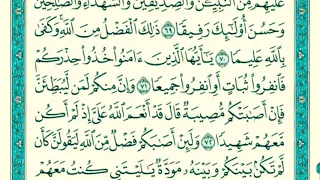 عَلَيْهِم مِّنَ ٱلنَّبِيِّـۧنَ وَٱلصِّدِّيقِينَ وَٱلشُّهَدَآءِ وَٱلصَّٰلِحِينَ
وَحَسُنَ أُو۟لَٰٓئِكَ رَفِيقًا ٦٩ ذَٰلِكَ ٱلْفَضْلُ مِنَ ٱللَّهِ وَكَفَىٰ
بِٱللَّهِ عَلِيمًا ٧٠ يَٰٓأَيُّهَا ٱلَّذِينَ ءَامَنُوا۟ خُذُوا۟ حِذْرَكُمْ
فَٱنفِرُوا۟ ثُبَاتٍ أَوِ ٱنفِرُوا۟ جَمِيعًا ٧١ وَإِنَّ مِنكُمْ لَمَن لَّيُبَطِّئَنَّ
فَإِنْ أَصَٰبَتْكُم مُّصِيبَةٌ قَالَ قَدْ أَنْعَمَ ٱللَّهُ عَلَىَّ إِذْ لَمْ أَكُن
مَّعَهُمْ شَهِيدًا ٧٢ وَلَئِنْ أَصَٰبَكُمْ فَضْلٌ مِّنَ ٱللَّهِ لَيَقُولَنَّ كَأَن
لَّمْ تَكُنۢ بَيْنَكُمْ وَبَيْنَهُۥ مَوَدَّةٌ يَٰلَيْتَنِى كُنتُ مَعَهُمْ